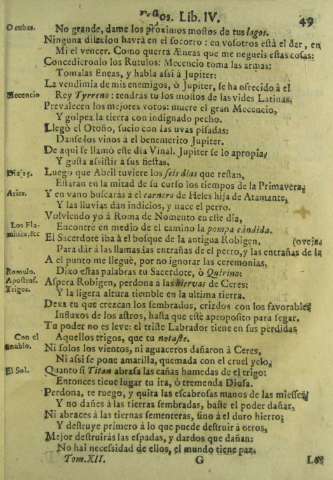 Fastos. Lib. IV. 49
Ombas. No grande, dame los próximos mostos de tus lagos.
Ninguna dilacion havrá en el socorro: en vosotros está el dar, en
Mi el vencer. Como querra Æneas que me negueis estas cosas:
Concedieronlo los Rutulos: Mecencio toma las armas:
Tomalas Eneas, y habla assi à Jupiter:
La vendimia de mis enemigos, ò Jupiter, se ha ofrecido à el
Mecencio Rey Tyrreno: tendràs tu los mostos de las vides Latinas,
Prevalecen los mejores votos: muere el gran Mecencio,
Y golpea la tierra con indignado pecho.
Llegò el Otoño, sucio con las uvas pisadas:
Danse los vinos à el benemerito Jupiter.
De aqui se llamó este dia Vinal. Jupiter se lo apropia,
Y gusta assistir a sus fiestas.
Luego que Abril tuviere los seis dias que restan,
Estaràn en la mitad de su curso los tiempos de la Primavera,
Aries. Y en vano buscaràs à el carnero de Heles hija de Atamante,
Y las lluvias dan indicios, y nace el perro.
Volviendo yò à Roma de Nomento en este dia,
Los Fla- Encontrè en medio de el camino la pompa cándida.
minios,&c El Sacerdote iba à el bosque de la antigua Robigen, (oveja
Para dàr à las llamas las entrañas de el perro, y las entrañas de la
A el punto me lleguè, por no ignorar las ceremonias.
Romulo. Dixo estas palabras tu Sacerdote, ò Quirino:
Apostrof. Aspera Robigen, perdona à las hiervas de Ceres:
Trigos. Y la ligera altura tiemble en la ultima tierra.
Dexa tu que crezcan los sembrados, crizdos con los favorables
Influxos de los astros, hasta que estè aproposito para segar.
Tu poder no es leve: el triste Labrador tiene en sus pérdidas
Con el Aquellos trigos, que tu notaste.
Ni solos los vientos, ni aguaceros dañaron à Ceres,
Ni assi se pone amarilla, quemada con el cruel yelo,
El Sol. Quanto si Titan abrasa las cañas humedas de el trigo:
Entonces tiene lugar tu ira, ò tremenda Diosa.
Perdona, te ruego, y quita las escabrosas manos de las miesses,
Y no dañes à las tierras sembradas, baste el poder dañar,
Ni abraces à las tiernas sementeras, sino à el duro hierro;
Y destruye primero à lo que puede destruir à otros,
Mejor destruiràs las espadas, y dardos que dañan:
No hai necessidad de ellos, el mundo tiene paz.
Tom. XII. G